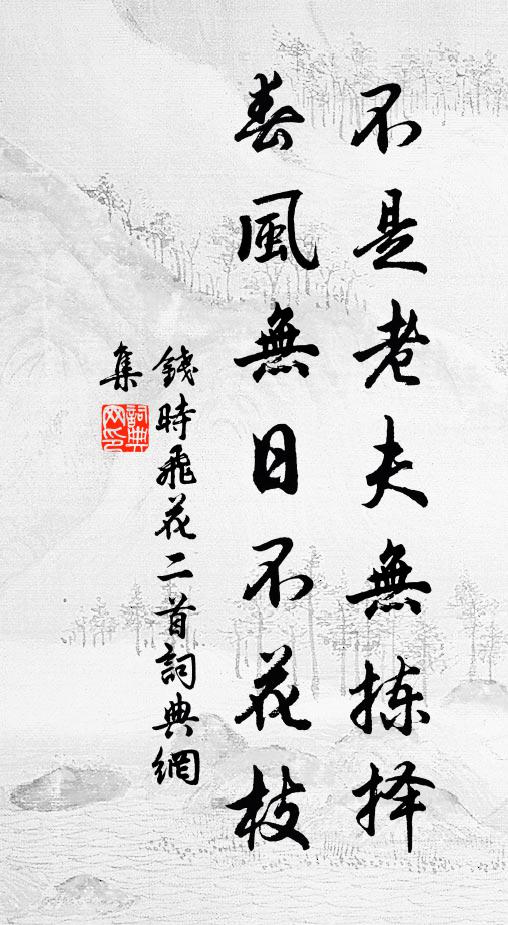 不是老夫無拣择
春風無日不花枝
錢時飛花二首詞典網
集
詞典網印